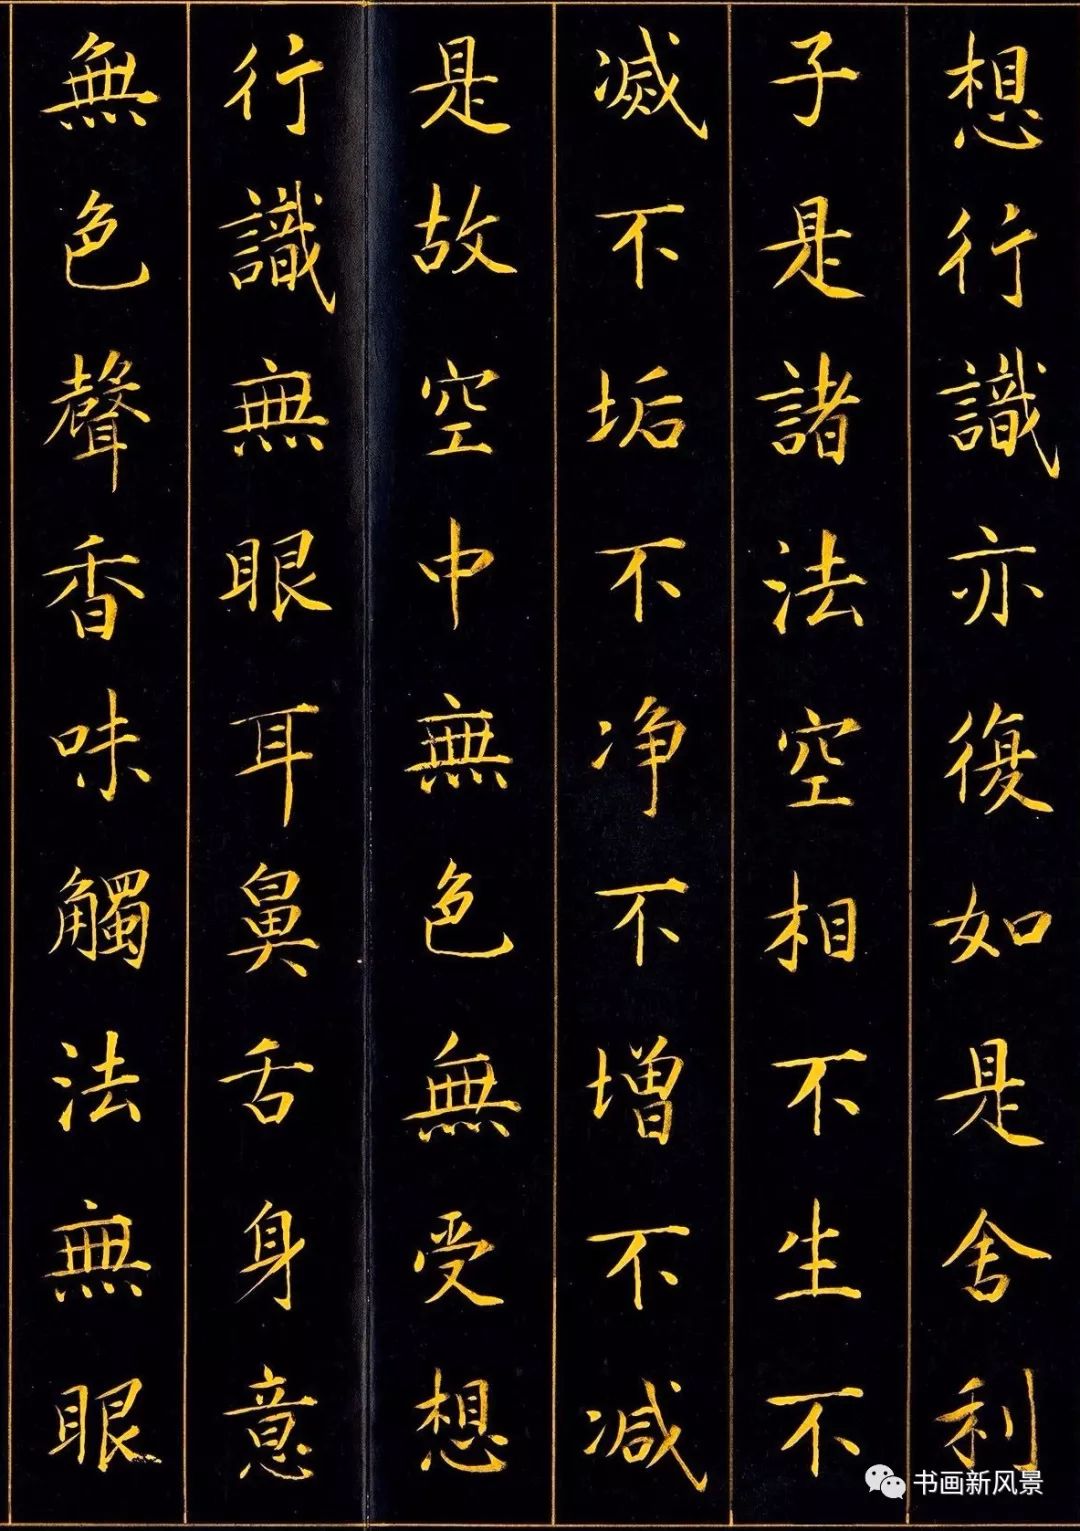 想行識亦復如是舍利
子是諸法空相不生不
滅不垢不净不增不減
是故空中無色無受想
行識無眼耳鼻舌身意
無色聲香味觸法無眼
书画新风景